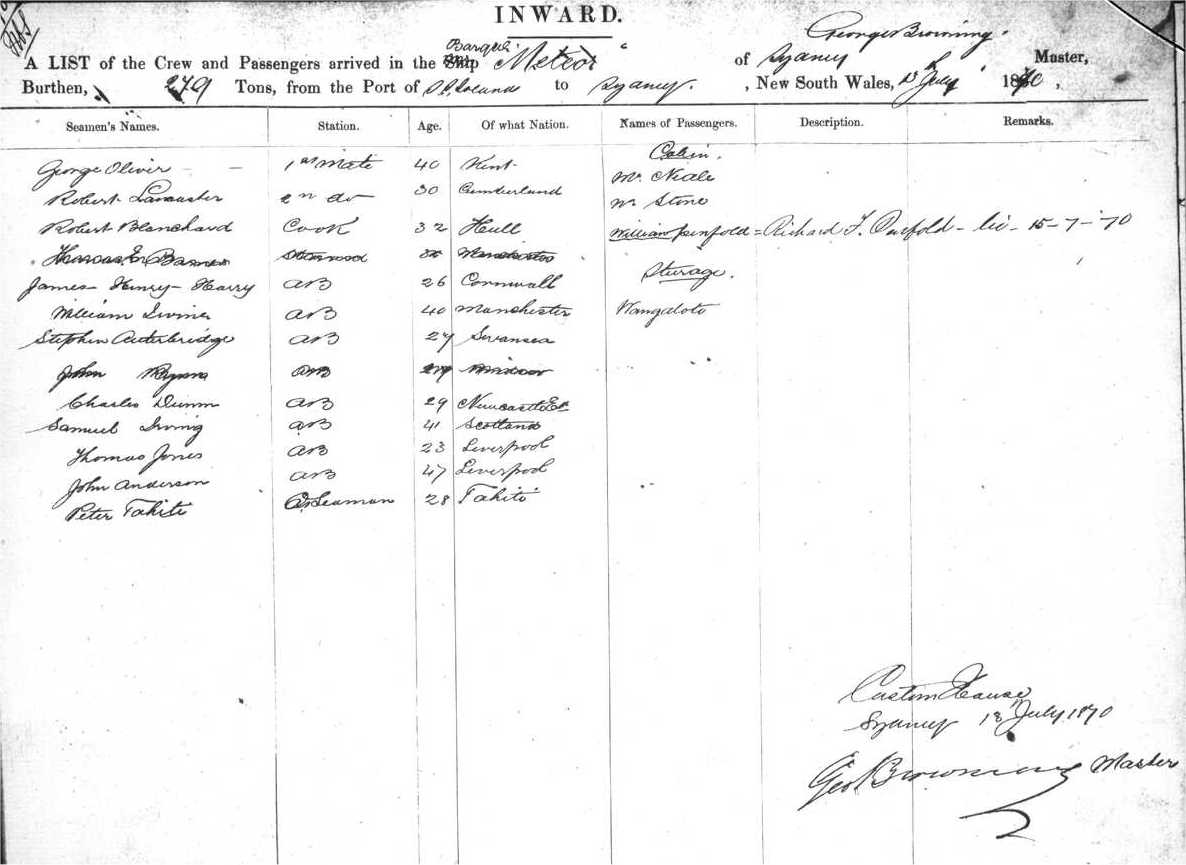 INWARD.
George Browning
A LIST of the Crew and Passengers arrived in the Barque Meteor of Sydney Master,
Burthen, 279 Tons, from the Port of S. S. Islands to Sydney. , New South Wales, July 1870,
Seamen's Names. Station. Age. Of what Nation. Names of Passengers. Description. Remarks.
Cabin.
George Oliver 1st Mate 40 Kent Mr. Neale
Robert Lancaster 2nd do 30 Cumberland Mr Stone
Robert Blanchard Cook 32 Hull William Penfold = Richard F. Penfold - 15-7-'70
Thomas Barnes Steward Manchester
Sturage.
James Henry Harry AB 26 Cornwall
William AB 40 Manchester Wangaloto
Stephen Auterbridge AB 27 Swansea
John AB 29
Charles Dunn AB 29 Newcastle
Samuel Irving AB 41 Scotland
Thomas Jones AB 23 Liverpool
John Anderson AB 47 Liverpool
Peter Tahiti Seaman 28 Tahiti
Custom House
Sydney 18 July 1870
Geo Browning Master